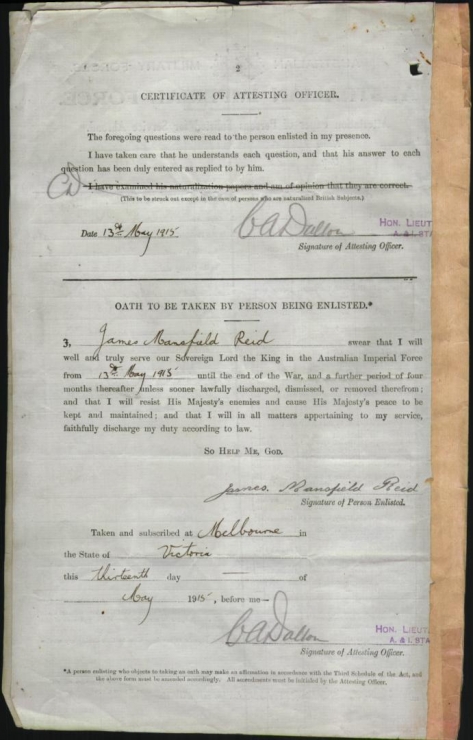 2
CERTIFICATE OF ATTESTING OFFICER.
The foregoing questions were read to the person enlisted in my presence.
I have taken care that he understands each question, and that his answer to each
question has been duly entered as replied to by him.
I have examined his naturalization papers and am of opinion that they are correct.
(This to be struck out except in the case of persons who are naturalized British Subjects.)
Date 13th May 1915
C A Dalton
HON. LIEUT
A. & I. STA
Signature of Attesting Officer.
OATH TO BE TAKEN BY PERSON BEING ENLISTED.*
I, James Mansfield Reid swear that I will
well and truly serve our Sovereign Lord the King in the Australian Imperial Force
from 13th May 1915 until the end of the War, and a further period of four
months thereafter unless sooner lawfully discharged, dismissed, or removed therefrom;
and that I will resist His Majesty's enemies and cause His Majesty's peace to be
kept and maintained; and that I will in all matters appertaining to my service,
faithfully discharge my duty according to law.
SO HELP ME, GOD.
James Mansfield Reid
Signature of Person Enlisted.
Taken and subscribed at Melbourne in
the State of Victoria
this thirteenth day of
May 1915, before me—
C A Dalton
HON. LIEUT
A. & I. STA
Signature of Attesting Officer.
*A person enlisting who objects to taking an oath may make an affirmation in accordance with the Third Schedule of the Act, and
the above form must be amended accordingly. All amendments must be initialed by the Attesting Officer.